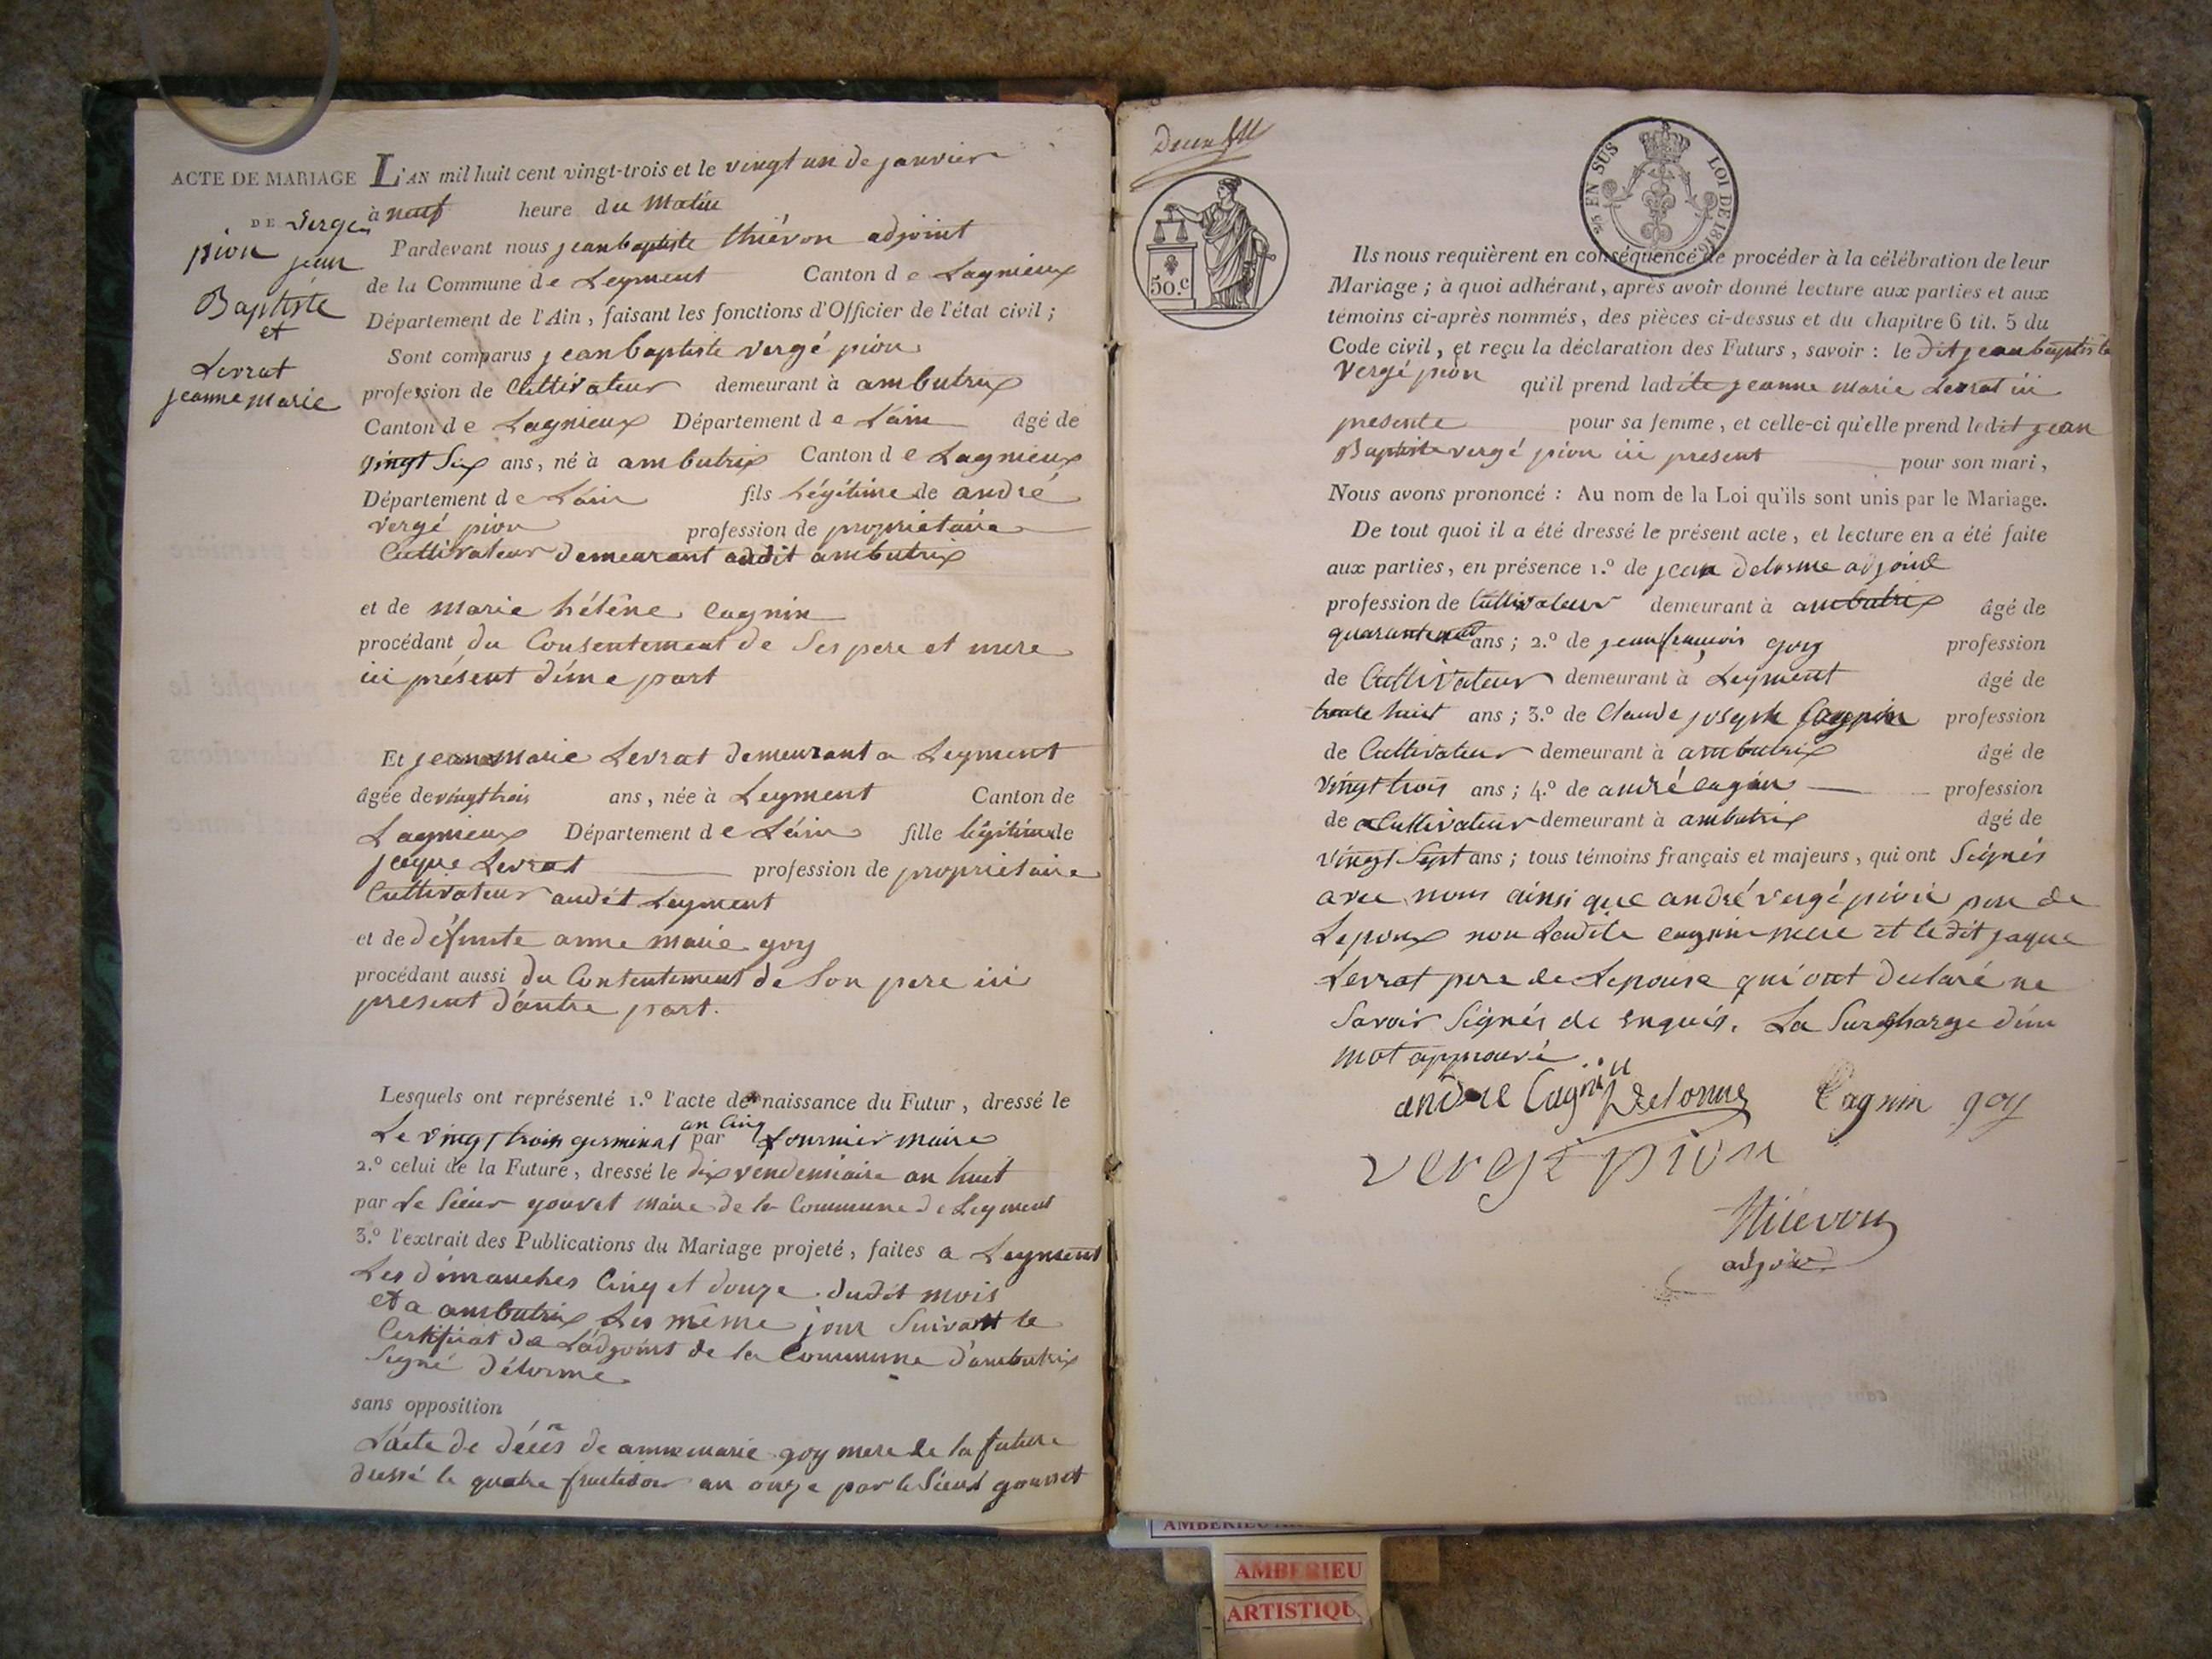 ACTE DE MARIAGE
DE Verge
pion jean
Baptiste
et
Levrat
jeanne marie
L'AN mil huit cent vingt-trois et le vingt un de janvier
à neuf heure du matin
Pardevant nous jean baptiste thiévon adjoint
de la Commune de Leyment Canton de Lagnieux
Département de l'Ain, faisant les fonctions d'Officier de l'état civil ;
Sont comparus jean baptiste vergé pion
profession de Cultivateur demeurant à ambutrix
Canton de Lagnieux Département de Lain âgé de
vingt Six ans, né à ambutrix Canton de Lagnieux
Département de Lain fils légitime de andré
vergé pion profession de propriétaire
Cultivateur demeurant audit ambutrix
et de marie hélène cagnin
procédant du Consentement de Ses pere et mere
ici présent d'une part
Et jeanne Marie Levrat demeurant a Leyment
âgée de vingt trois ans, née à Leyment Canton de
Lagnieux Département de Lain fille légitime de
jaque Levrat profession de propriétaire
Cultivateur audit Leyment
et de défunte anne marie goy
procédant aussi du Consentement de Son pere ici
present d'autre part.
Lesquels ont représenté 1.º l'acte de naissance du Futur, dressé le
Le vingt trois germinal an Cinq par fournier maire
2.º celui de la Future, dressé le dix vendemiaire an huit
par Le Sieur gouvet maire de la Commune de Leyment
3.º l'extrait des Publications du Mariage projeté, faites a Leyment
Les dimanches Cinq et douze dudit mois
et a ambutrix Les même jour Suivant le
Certificat de Ladjoint de la Commune d'ambutrix
Signé délorme
sans opposition
L'acte de décès de anne marie goy mere de la future
dressé le quatre fructidor an onze par le Sieur gouvet
50.c
EN SUS LOI DE 1816.
Ils nous requièrent en conséquence de procéder à la célébration de leur
Mariage ; à quoi adhérant, après avoir donné lecture aux parties et aux
témoins ci-après nommés, des pièces ci-dessus et du chapitre 6 tit. 5 du
Code civil, et reçu la déclaration des Futurs, savoir : le dit jean baptiste
vergé pion qu'il prend ladite jeanne marie Levrat ici
presente pour sa femme, et celle-ci qu'elle prend ledit jean
Baptiste vergé pion ici present pour son mari,
Nous avons prononcé : Au nom de la Loi qu'ils sont unis par le Mariage.
De tout quoi il a été dressé le présent acte, et lecture en a été faite
aux parties, en présence 1.º de jean delorme adjoint
profession de Cultivateur demeurant à ambutrix âgé de
ans ; 2.º de jean françois goy profession
de Cultivateur demeurant à Leyment âgé de
trente huit ans ; 3.º de Claude joseph Cagnin profession
de Cultivateur demeurant à ambutrix âgé de
vingt trois ans ; 4.º de andré cagnin profession
de Cultivateur demeurant à ambutrix âgé de
vingt Sept ans ; tous témoins français et majeurs, qui ont Signés
avec nous ainsi que andré vergé pion pere de
Lepoux non Ladite cagnin mere et le dit jaque
Levrat pere de Lepouse qui ont declaré ne
Savoir Signés de enquis. La Surcharge d'un
mot approuvé
andre Cagnin Delorme Cagnin goy
verge pion
thievon
adjoint
AMBERIEU
AMBERIEU
ARTISTIQU